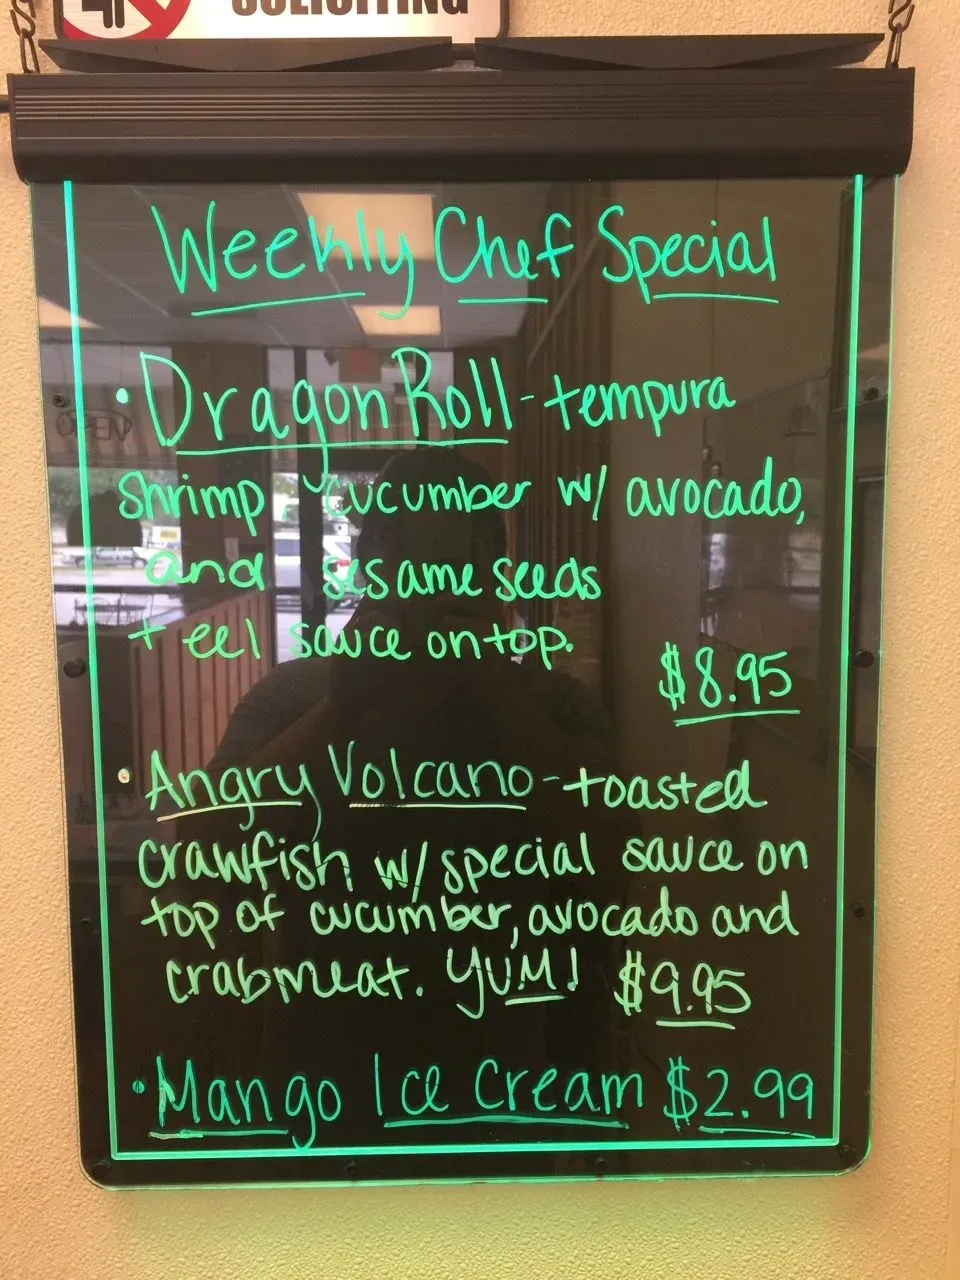 SOLICITING
Weekly Chef Special
• Dragon Roll - tempura
shrimp cucumber w/ avocado,
and sesame seeds
+ eel sauce on top.
$8.95
• Angry Volcano - toasted
crawfish w/ special sauce on
top of cucumber, avocado and
crabmeat. YUM! $9.95
• Mango Ice Cream $2.99